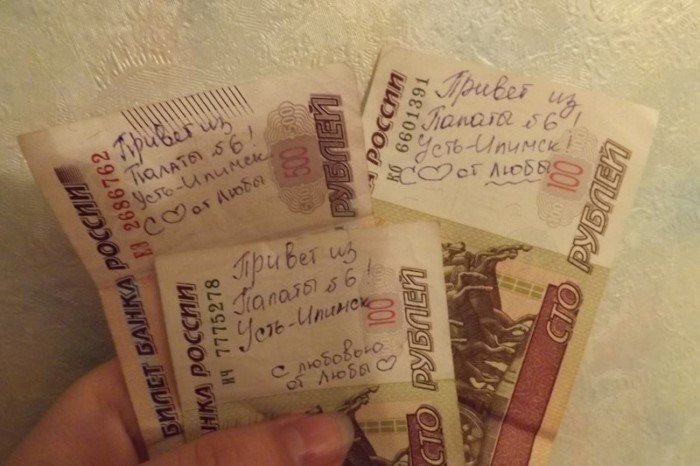 Привет из
Палаты №6!
Усть-Илимск
С ♡ от Любы
БИЛЕТ БАНКА РОССИИ
2686762
500
500
РУБЛЕЙ
Привет из
Палаты №6!
Усть-Илимск!
С ♡ от Любы
РОССИИ
6601391
100
СТО РУБЛЕЙ
Привет из
Палаты №6!
Усть-Илимск
С любовью
от Любы ♡
БАНКА РОССИИ
7775278
100
СТО РУБЛЕЙ